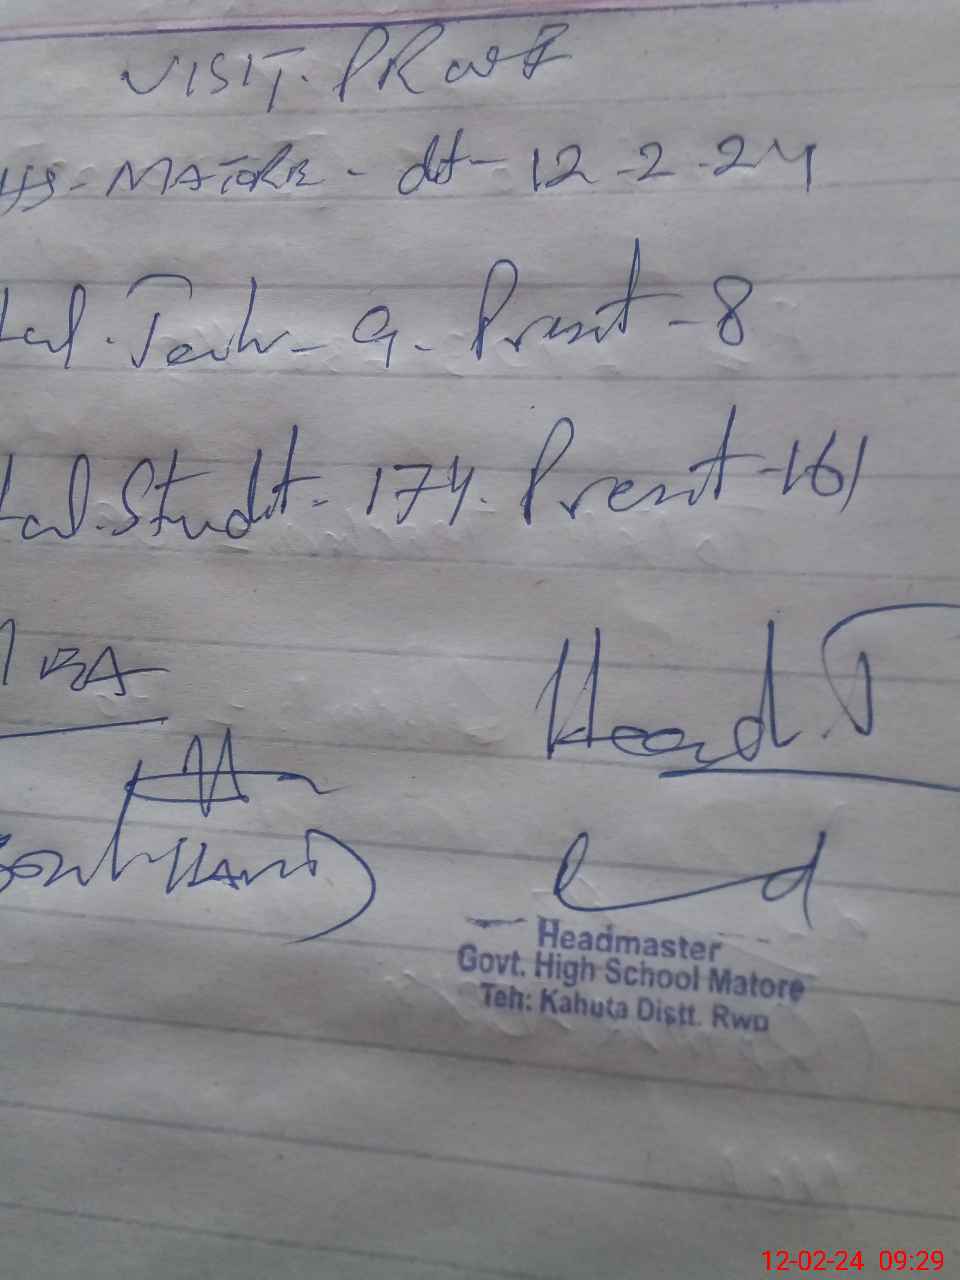 VISIT. PROOF
HS - MATORE - dt - 12-2-24
tal. Teach - 9. Present - 8
tal. Studt - 174. Present - 161
Head.T
Headmaster
Govt. High School Matore
Teh: Kahuta Distt. Rwp
12-02-24 09:29